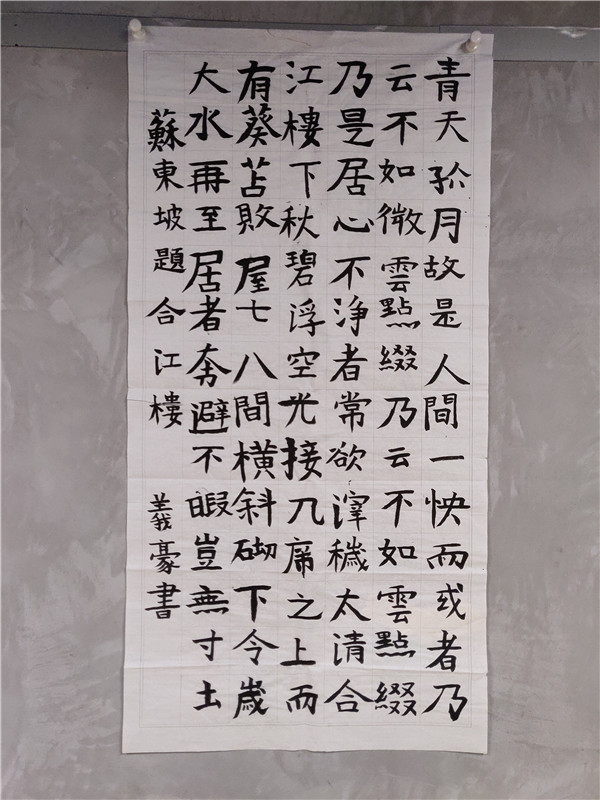 青天孤月故是人間一怏而或者乃
云不如微雲點綴乃云不如雲點綴
乃是居心不淨者常欲滓穢太清合
江樓下秋碧浮空光接几席之上而
有葵苫敗屋七八間橫斜砌下令歲
大水再至居者奔避不暇豈無寸土
蘇東坡題合江樓 義豪書